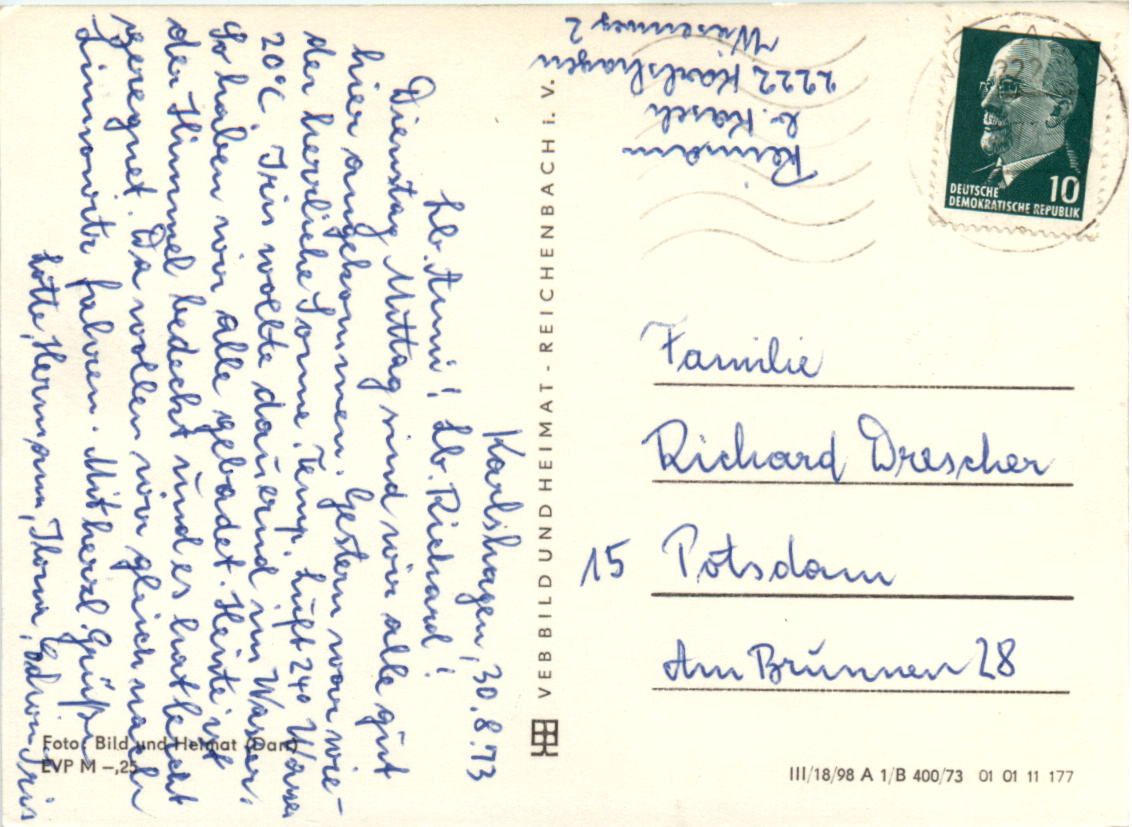 Karlshagen, 30.8.73
Lb. Anni! Lb. Richard!
Dienstag Mittag sind wir alle gut
hier angekommen. Gestern war wie-
der herrliche Sonne. Temp. Luft 24°
20°C Iris wollte dauernd ins Wasser.
So haben wir alle gebadet. Heute ist
der Himmel bedeckt und es hat leicht
geregnet. Da wollen wir gleich nach
Zinnowitz fahren. Mit herzl. Grüßen
Lotte, Hermann, Thom, Edwin Iris
Foto: Bild und Heimat (Dart)
EVP M –,25
VEB BILD UND HEIMAT - REICHENBACH i. V.
Reimann
b. Kasch
2222 Karlshagen
Wiesenweg 2
DEUTSCHE
DEMOKRATISCHE REPUBLIK
10
Familie
Richard Drescher
15 Potsdam
Am Brunnen 28
III/18/98 A 1/B 400/73 01 01 11 177